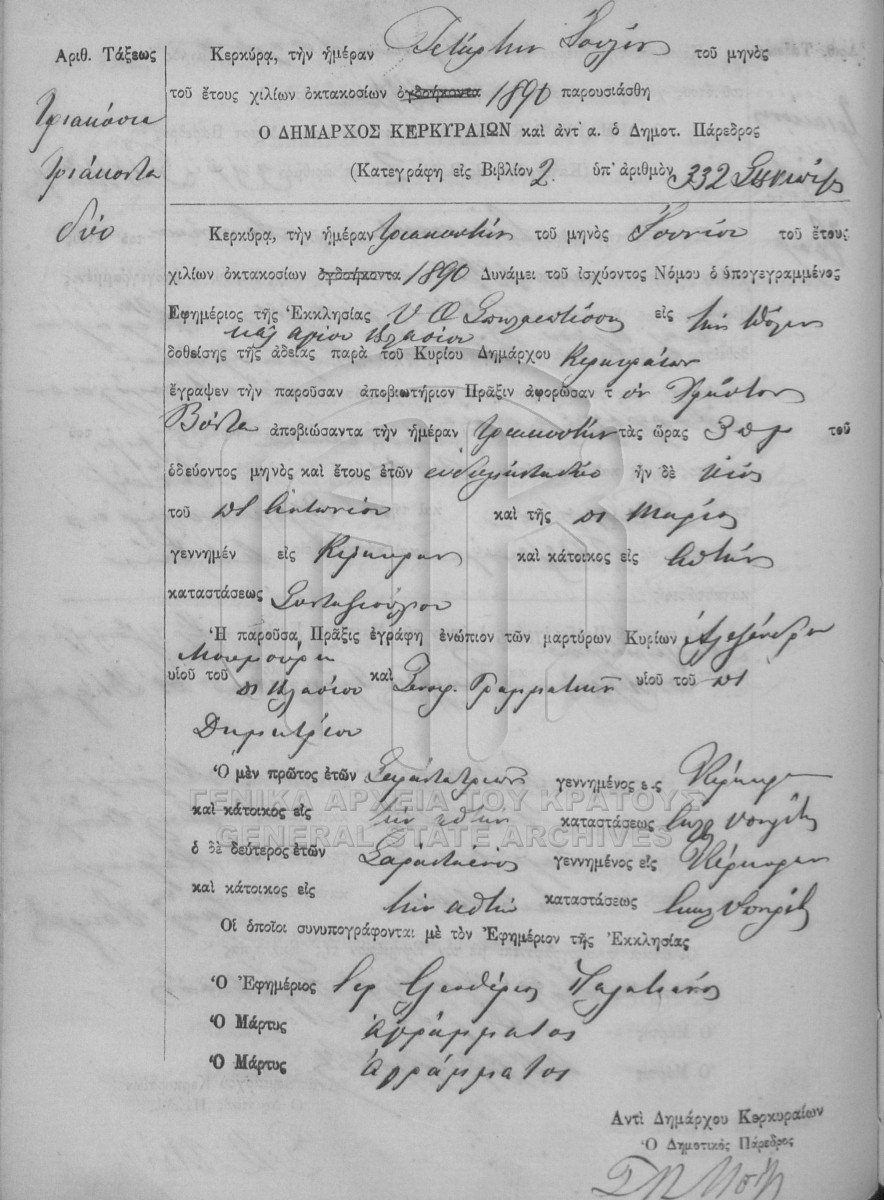 Αριθ. Τάξεως
Τριακόσια
τριάκοντα
δύο
Κερκύρα, τὴν ἡμέραν Τετάρτην Ἰουλίου τοῦ μηνὸς
τοῦ ἔτους χιλίων ὀκτακοσίων ὀγδοήκοντα 1890 παρουσιάσθη
Ο ΔΗΜΑΡΧΟΣ ΚΕΡΚΥΡΑΙΩΝ καὶ ἀντ' α. ὁ Δημοτ. Πάρεδρος
(Κατεγράφη εἰς Βιβλίον 2 ὑπ' ἀριθμὸν 332
Κερκύρα, τὴν ἡμέραν τριακοστὴν τοῦ μηνὸς Ἰουνίου τοῦ ἔτους
χιλίων ὀκτακοσίων ὀγδοήκοντα 1890 Δυνάμει τοῦ ἰσχύοντος Νόμου ὁ ὑπογεγραμμένος
Ἐφημέριος τῆς Ἐκκλησίας Υ Θ Σπηλαιωτίσσης εἰς τὴν πόλιν
καὶ ἁγίου Βλασίου
δοθείσης τῆς ἀδείας παρὰ τοῦ Κυρίου Δημάρχου Κερκυραίων
ἔγραψεν τὴν παροῦσαν ἀποβιωτήριον Πρᾶξιν ἀφορῶσαν τ ὸν Χρῆστον
Βόντα ἀποβιώσαντα τὴν ἡμέραν τριακοστὴν τὰς ὥρας 3 π μ τοῦ
ὁδεύοντος μηνὸς καὶ ἔτους ἐτῶν ἑβδομήκοντα δύο ἦν δὲ υἱὸς
τοῦ πτ Ἀντωνίου καὶ τῆς πτ Μαρίας
γεννημέν εἰς Κέρκυραν καὶ κάτοικος εἰς Αὐτὴν
καταστάσεως Συνταξιούχου
Ἡ παροῦσα Πρᾶξις ἐγράφη ἐνώπιον τῶν μαρτύρων Κυρίων Ἀλεξάνδρου
Μουμούρη
υἱοῦ τοῦ πτ Βλασίου καὶ Σπυρ. Γραμματικὸν υἱοῦ τοῦ πτ
Δημητρίου
Ὁ μὲν πρῶτος ἐτῶν Σαράντα τριῶν γεννημένος ε ς Κέρκυραν
καὶ κάτοικος εἰς τὴν αὐτὴν καταστάσεως Ἐκκλ Υπηρέτης
ὁ δὲ δεύτερος ἐτῶν Σαράντα ἑνὸς γεννημένος εἰς Κέρκυραν
καὶ κάτοικος εἰς τὴν αὐτὴν καταστάσεως Ἐκκλ Υπηρέτης
Οἱ ὁποῖοι συνυπογράφονται μὲ τὸν Ἐφημέριον τῆς Ἐκκλησίας
Ὁ Ἐφημέριος Ἱερ Ἐλευθέριος Παλατιανός
Ὁ Μάρτυς ἀγράμματος
Ὁ Μάρτυς ἀγράμματος
Αντὶ Δημάρχου Κερκυραίων
Ὁ Δημοτικὸς Πάρεδρος
ΓΕΝΙΚΑ ΑΡΧΕΙΑ ΤΟΥ ΚΡΑΤΟΥΣ
GENERAL STATE ARCHIVES